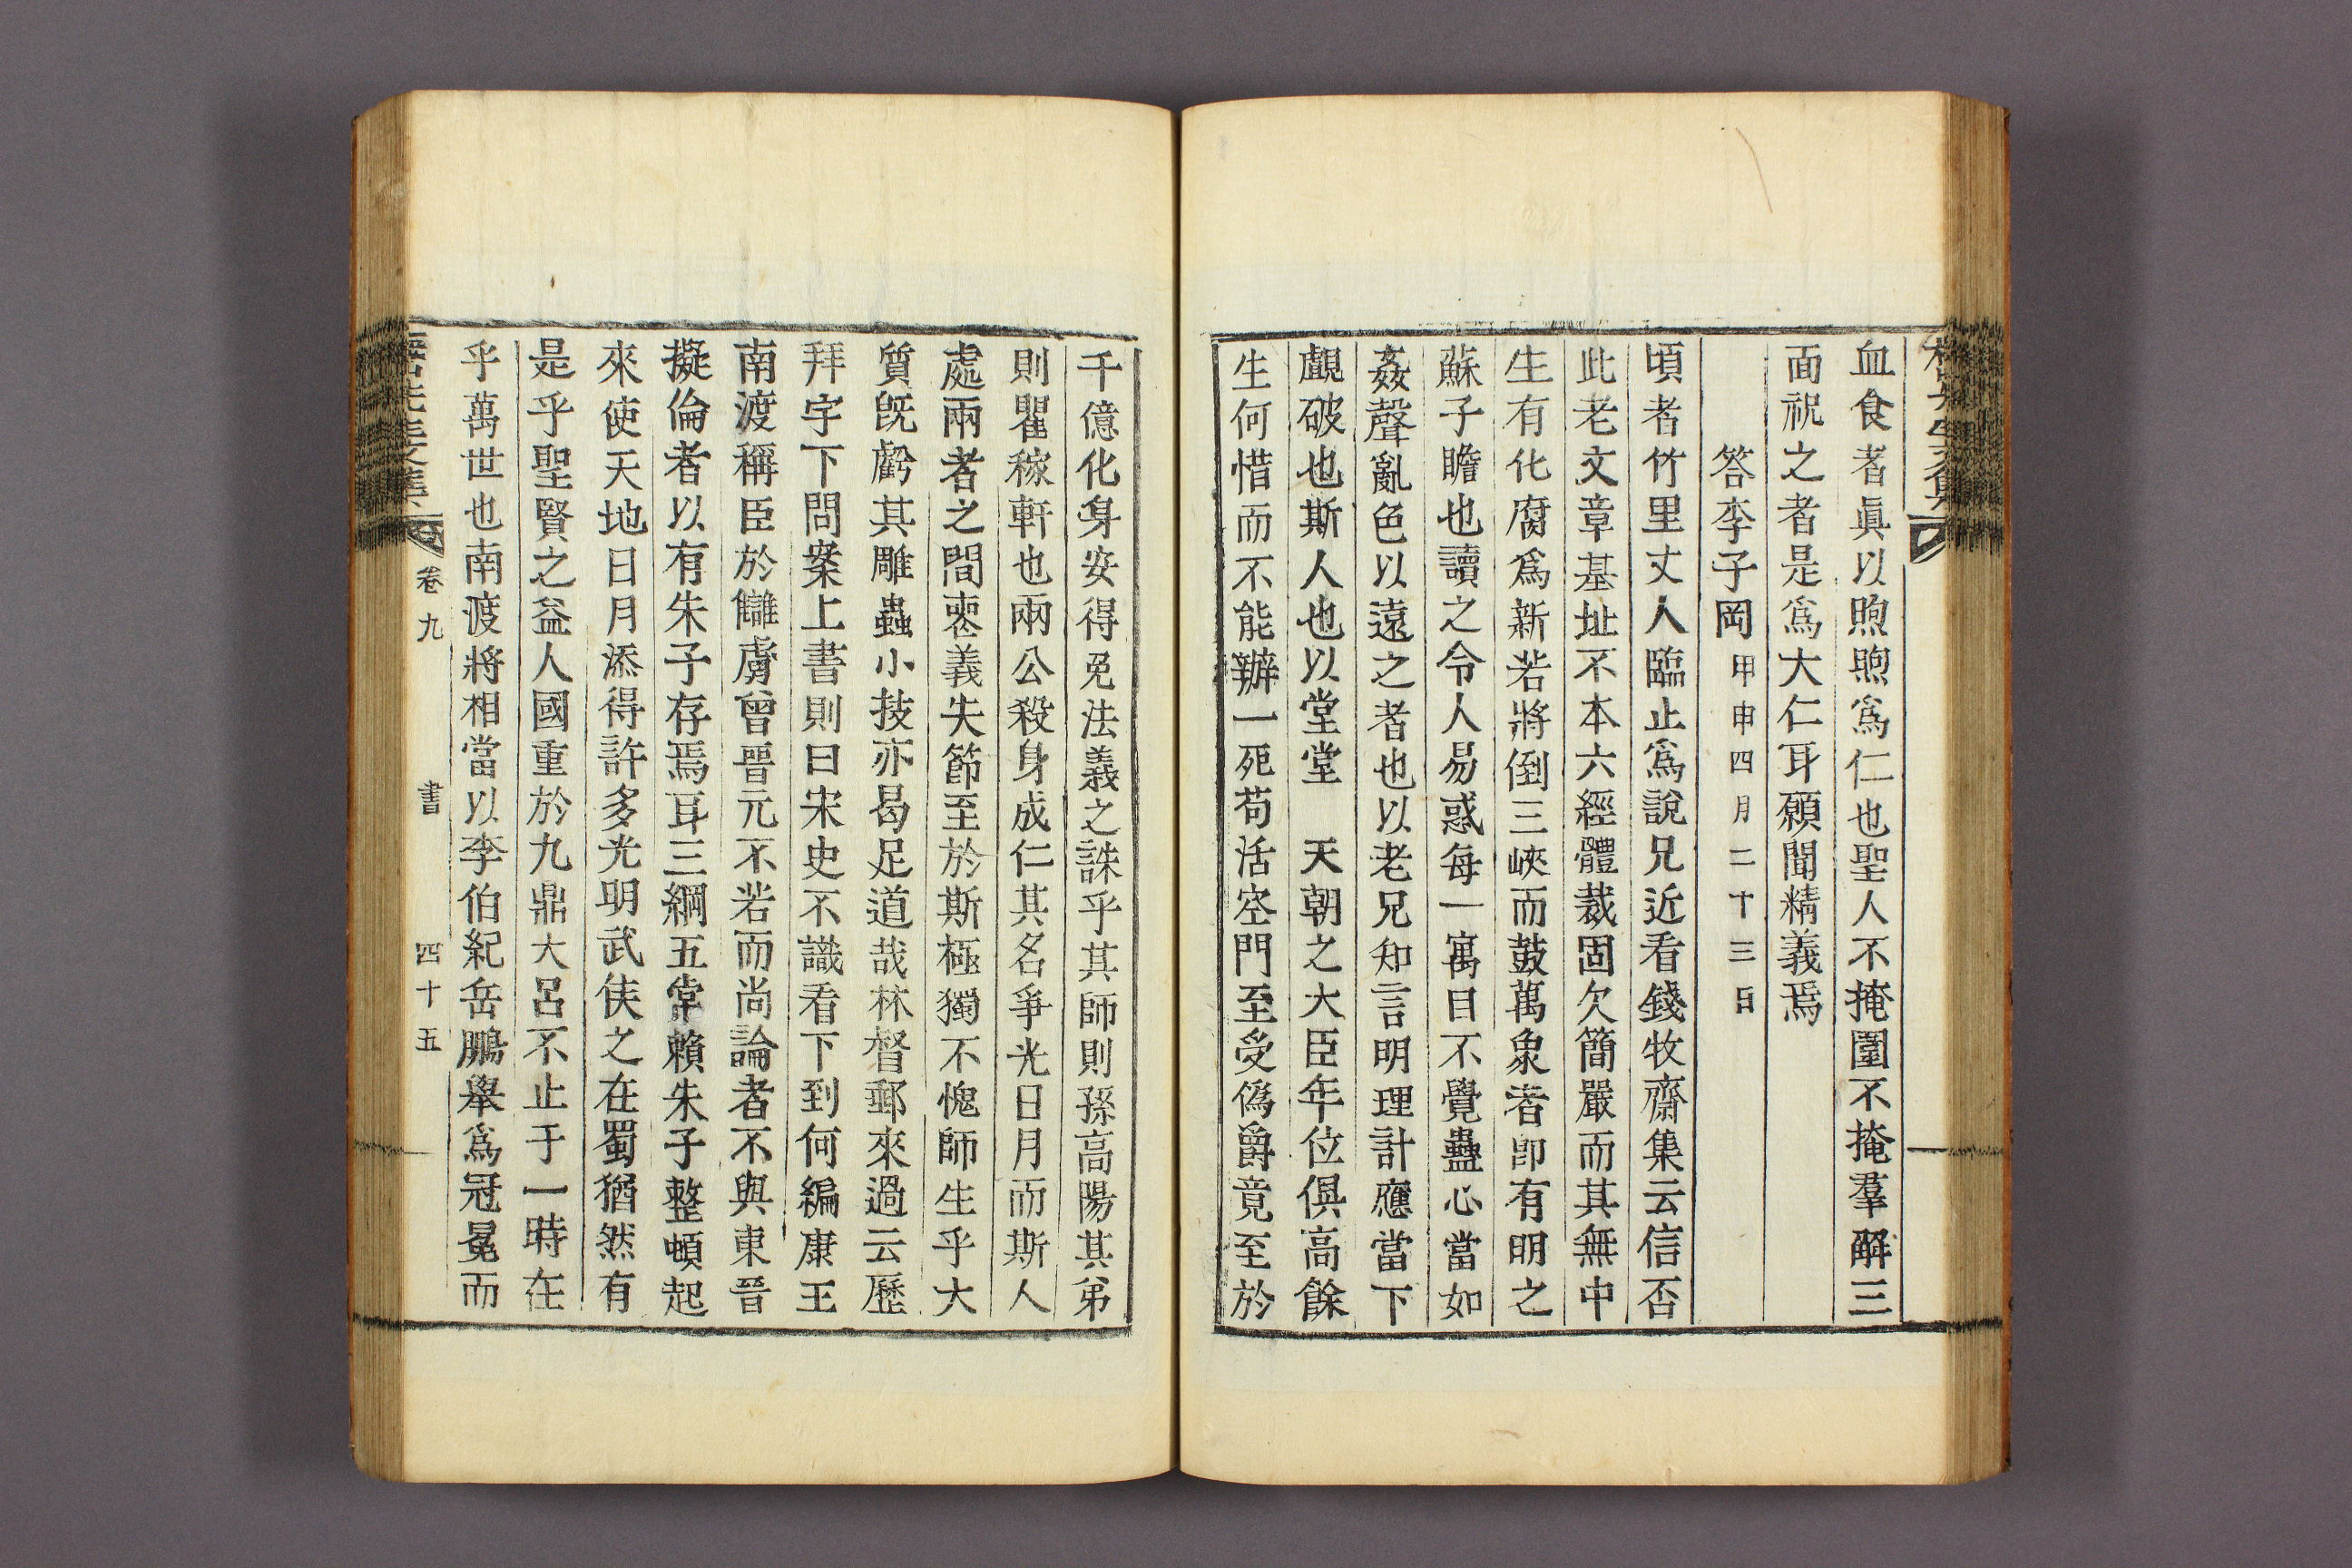 血食者眞以煦煦爲仁也聖人不掩圍不掩羣解三
面祝之者是爲大仁耳願聞精義焉
答李子岡甲申四月二十三日
頃者竹里丈人臨止爲說兄近看錢牧齋集云信否
此老文章基址不本六經體裁固欠簡嚴而其無中
生有化腐爲新若將倒三峽而鼓萬象者卽有明之
蘇子瞻也讀之令人易惑每一寓目不覺蠱心當如
姦聲亂色以遠之者也以老兄知言明理計應當下
覰破也斯人也以堂堂 天朝之大臣年位俱高餘
生何惜而不能辦一死苟活空門至受僞爵竟至於
千億化身安得免法義之誅乎其師則孫高陽其弟
則瞿稼軒也兩公殺身成仁其名爭光日月而斯人
處兩者之間喪義失節至於斯極獨不愧師生乎大
質旣虧其雕蟲小技亦曷足道哉林督郵來過云歷
拜宇下問案上書則曰宋史不識看下到何編康王
南渡稱臣於讎虜曾晉元不若而尚論者不與東晉
擬倫者以有朱子存焉耳三綱五常賴朱子整頓起
來使天地日月添得許多光明武侯之在蜀猶然有
是乎聖賢之益人國重於九鼎大呂不止于一時在
乎萬世也南渡將相當以李伯紀岳鵬擧爲冠冕而
卷九 書 四十五